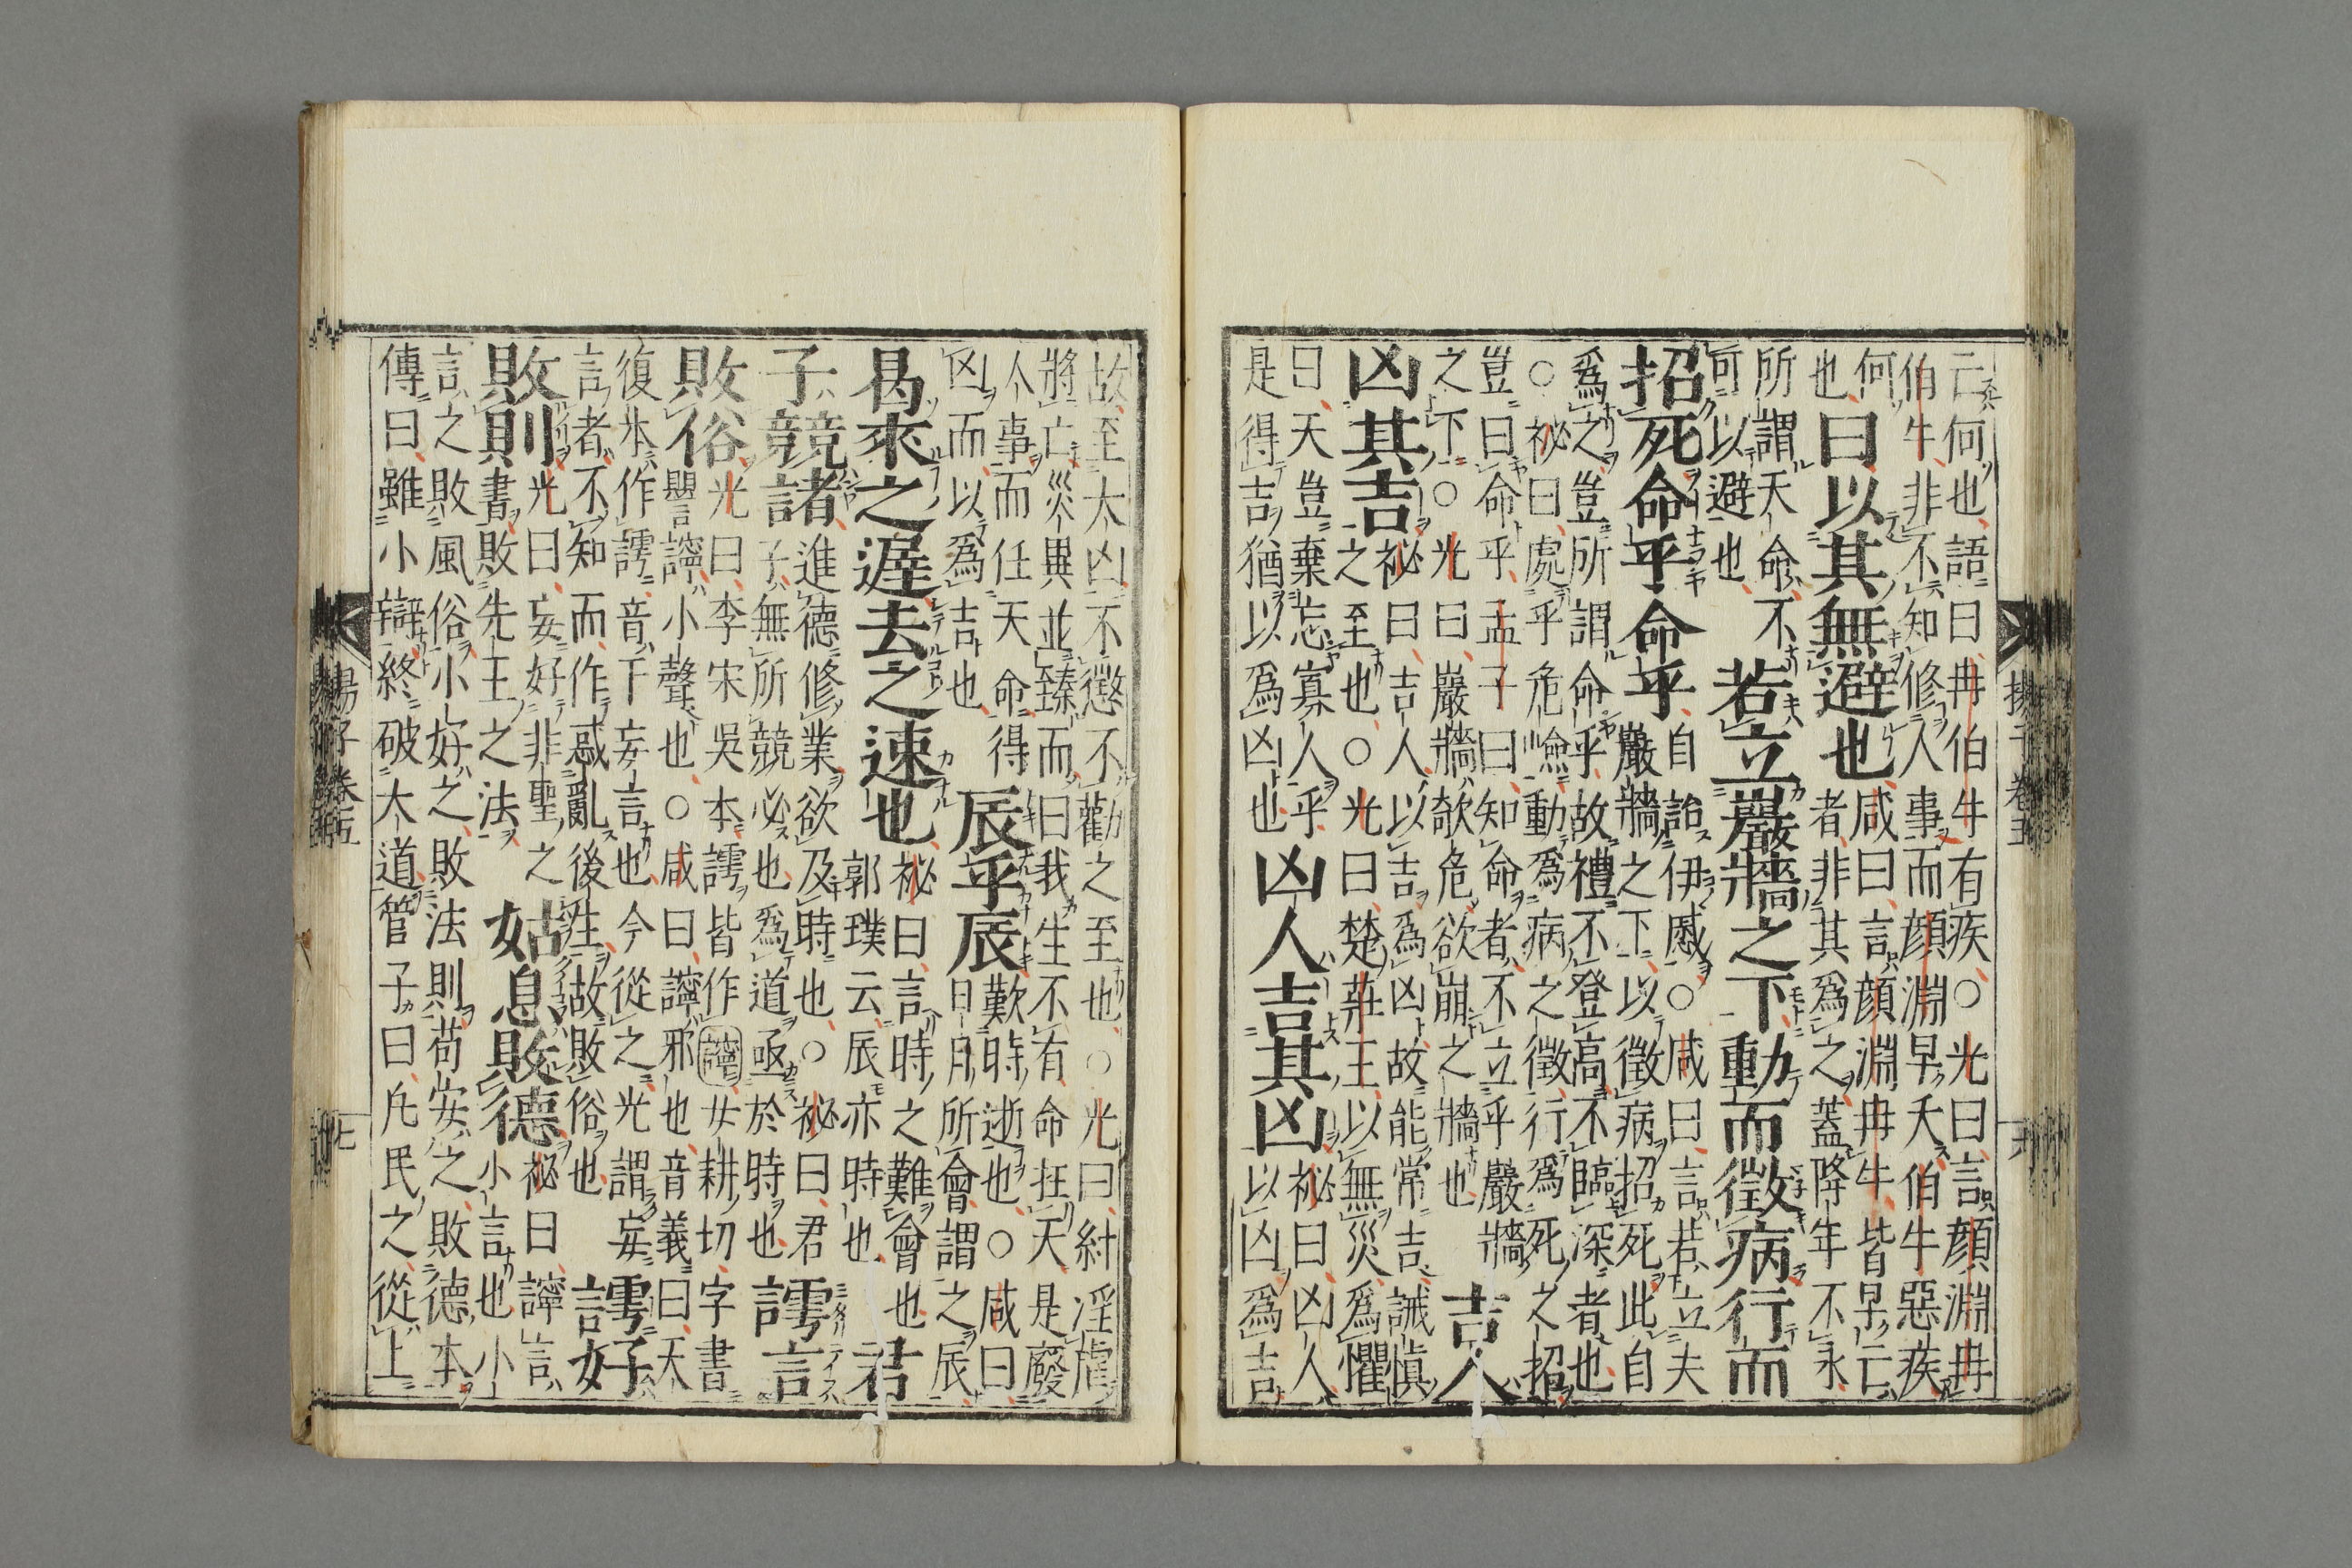 亡何也語曰冉伯牛有疾○光曰言顏淵冉
伯牛非不知修人事而顏淵早夭伯牛惡疾
何
也
曰以其無避也
咸曰言顏淵冉牛皆早亡
者非其爲之蓋降年不永
所謂天命不
可以避也
若立巖牆之下動而徵病行而
招死命乎命乎
自詒伊慼○咸曰言若立夫
巖牆之下以徵病招死此自
爲之豈所謂命乎故禮不登高不臨深者也
○祕曰處乎危險動爲病之徵行爲死之招
豈曰命乎孟子曰知命者不立乎巖牆
之下○光曰巖牆欹危欲崩之牆也
吉人
凶其吉
祕曰吉人以吉爲凶故能常吉誡愼
之至也○光曰楚莊王以無災爲懼
曰天豈棄忘寡人乎
是得吉猶以爲凶也
凶人吉其凶
祕曰凶人
以凶爲吉
故至大凶不懲不勸之至也○光曰紂淫虐
將亡災異並臻而曰我生不有命在天是廢
人事而任天命得
凶而以爲吉也
辰乎辰
歎時逝也○咸曰
日月所會謂之辰
曷來之遲去之速也
祕曰言時之難會也
郭璞云辰亦時也
君
子競諸
進德修業欲及時也○祕曰君
子無所競必也爲道亟於時也
謣言
敗俗
光曰李宋吳本謣皆作女耕切字書
譻小聲也○咸曰邪也音義曰天
復本作謣音于妄言也今從之光謂妄
言者不知而作惑亂後生故敗俗也
謣好
敗則
光曰妄好非聖之
書敗先王之法
姑息敗德
祕曰言
小言也小
言之敗風俗小好之敗法則苟安之敗德本
傳曰雖小辯終破大道管子曰凡民之從上
揚子卷五
七